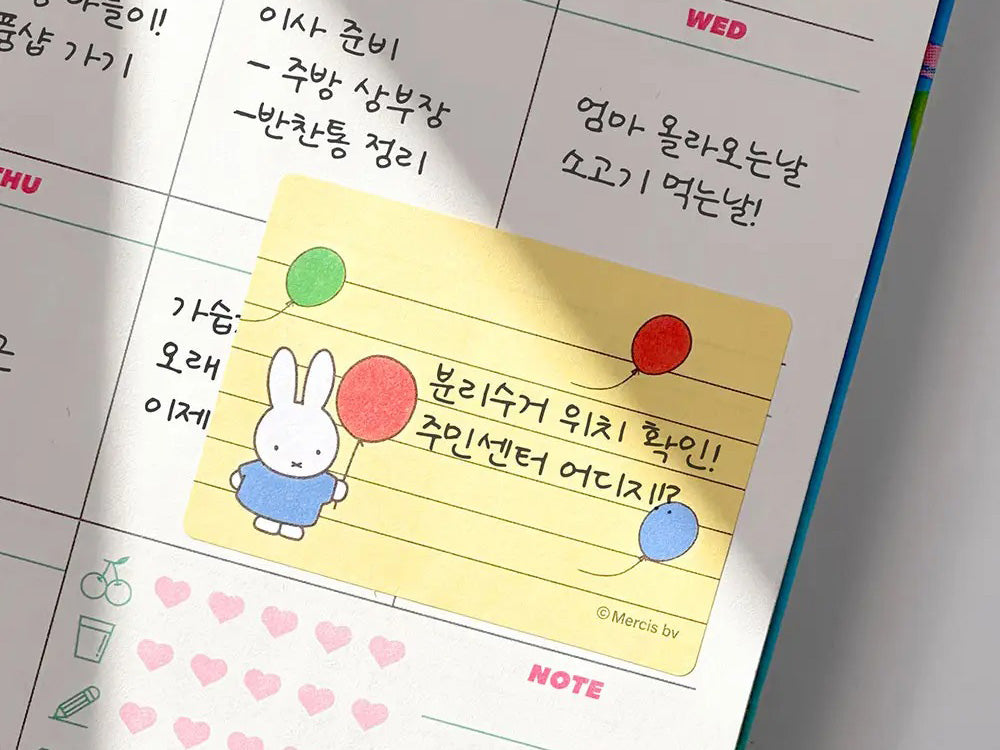 가기
이사 준비
- 주방 상부장
-반찬통 정리
WED
엄마 올라오는날
소고기 먹는날!
오래
이제
분리수거 위치 확인!
주민센터 어디지!?
©Mercis bv
NOTE